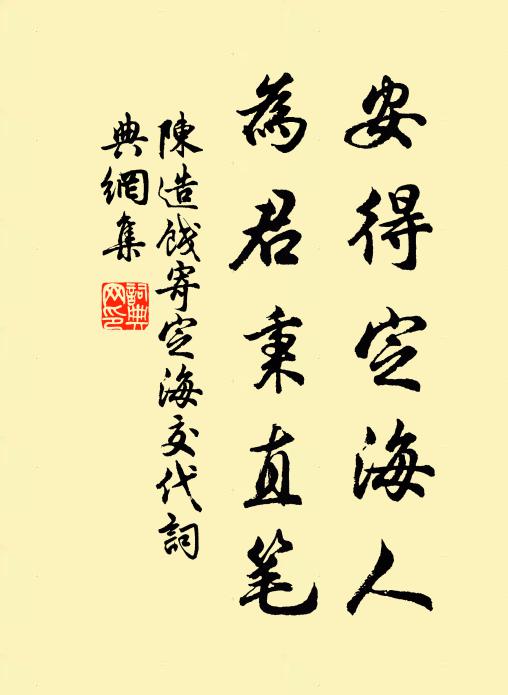 安得定海人
為君秉直笔
陳造餞寄定海交代詞
典網集
詞典网印